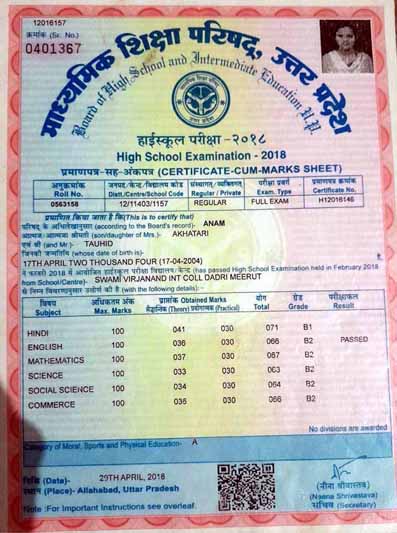 12016157
क्रमांक (Sr. No.)
0401367
माध्यमिक शिक्षा परिषद, उत्तर प्रदेश
Board of High School and Intermediate Education U.P.
हाईस्कूल परीक्षा -२०१८
High School Examination - 2018
प्रमाणपत्र-सह-अंकपत्र (CERTIFICATE-CUM-MARKS SHEET)
अनुक्रमांक जनपद/केन्द्र/विद्यालय कोड संस्थागत/व्यक्तिगत परीक्षा प्रवर्ग प्रमाणपत्र क्रमांक
Roll No. Distt./Centre/School Code Regular / Private Exam. Type Certificate No.
0563158 12/11403/1157 REGULAR FULL EXAM H12016146
प्रमाणित किया जाता है कि(This is to certify that)
परिषद के अभिलेखानुसार (according to the Board's record)- ANAM
आत्मज/आत्मजा श्रीमती (son/daughter of Mrs.)- AKHATARI
एवं श्री (and Mr.)- TAUHID
जिनकी जन्मतिथि (whose date of birth is)-
17TH APRIL TWO THOUSAND FOUR (17-04-2004)
ने फरवरी 2018 में आयोजित हाईस्कूल परीक्षा विद्यालय/केन्द्र (has passed High School Examination held in February 2018
from School/Centre)- SWAMI VIRJANAND INT COLL DADRI MEERUT
से निम्न विवरणानुसार उत्तीर्ण की है (with the following details):-
विषय अधिकतम अंक प्राप्तांक Obtained Marks योग ग्रेड परीक्षाफल
Subject Max. Marks सैद्धान्तिक (Theory) प्रयोगात्मक (Practical) Total Grade Result
HINDI 100 041 030 071 B1
ENGLISH 100 036 030 066 B2 PASSED
MATHEMATICS 100 037 030 067 B2
SCIENCE 100 033 030 063 B2
SOCIAL SCIENCE 100 034 030 064 B2
COMMERCE 100 036 030 066 B2
No divisions are awarded
Category of Moral, Sports and Physical Education- A
तिथि (Date)- 29TH APRIL, 2018
स्थान (Place)- Allahabad, Uttar Pradesh
Note :For Important Instructions see overleaf
(नीना श्रीवास्तव)
(Neena Shrivastava)
सचिव (Secretary)